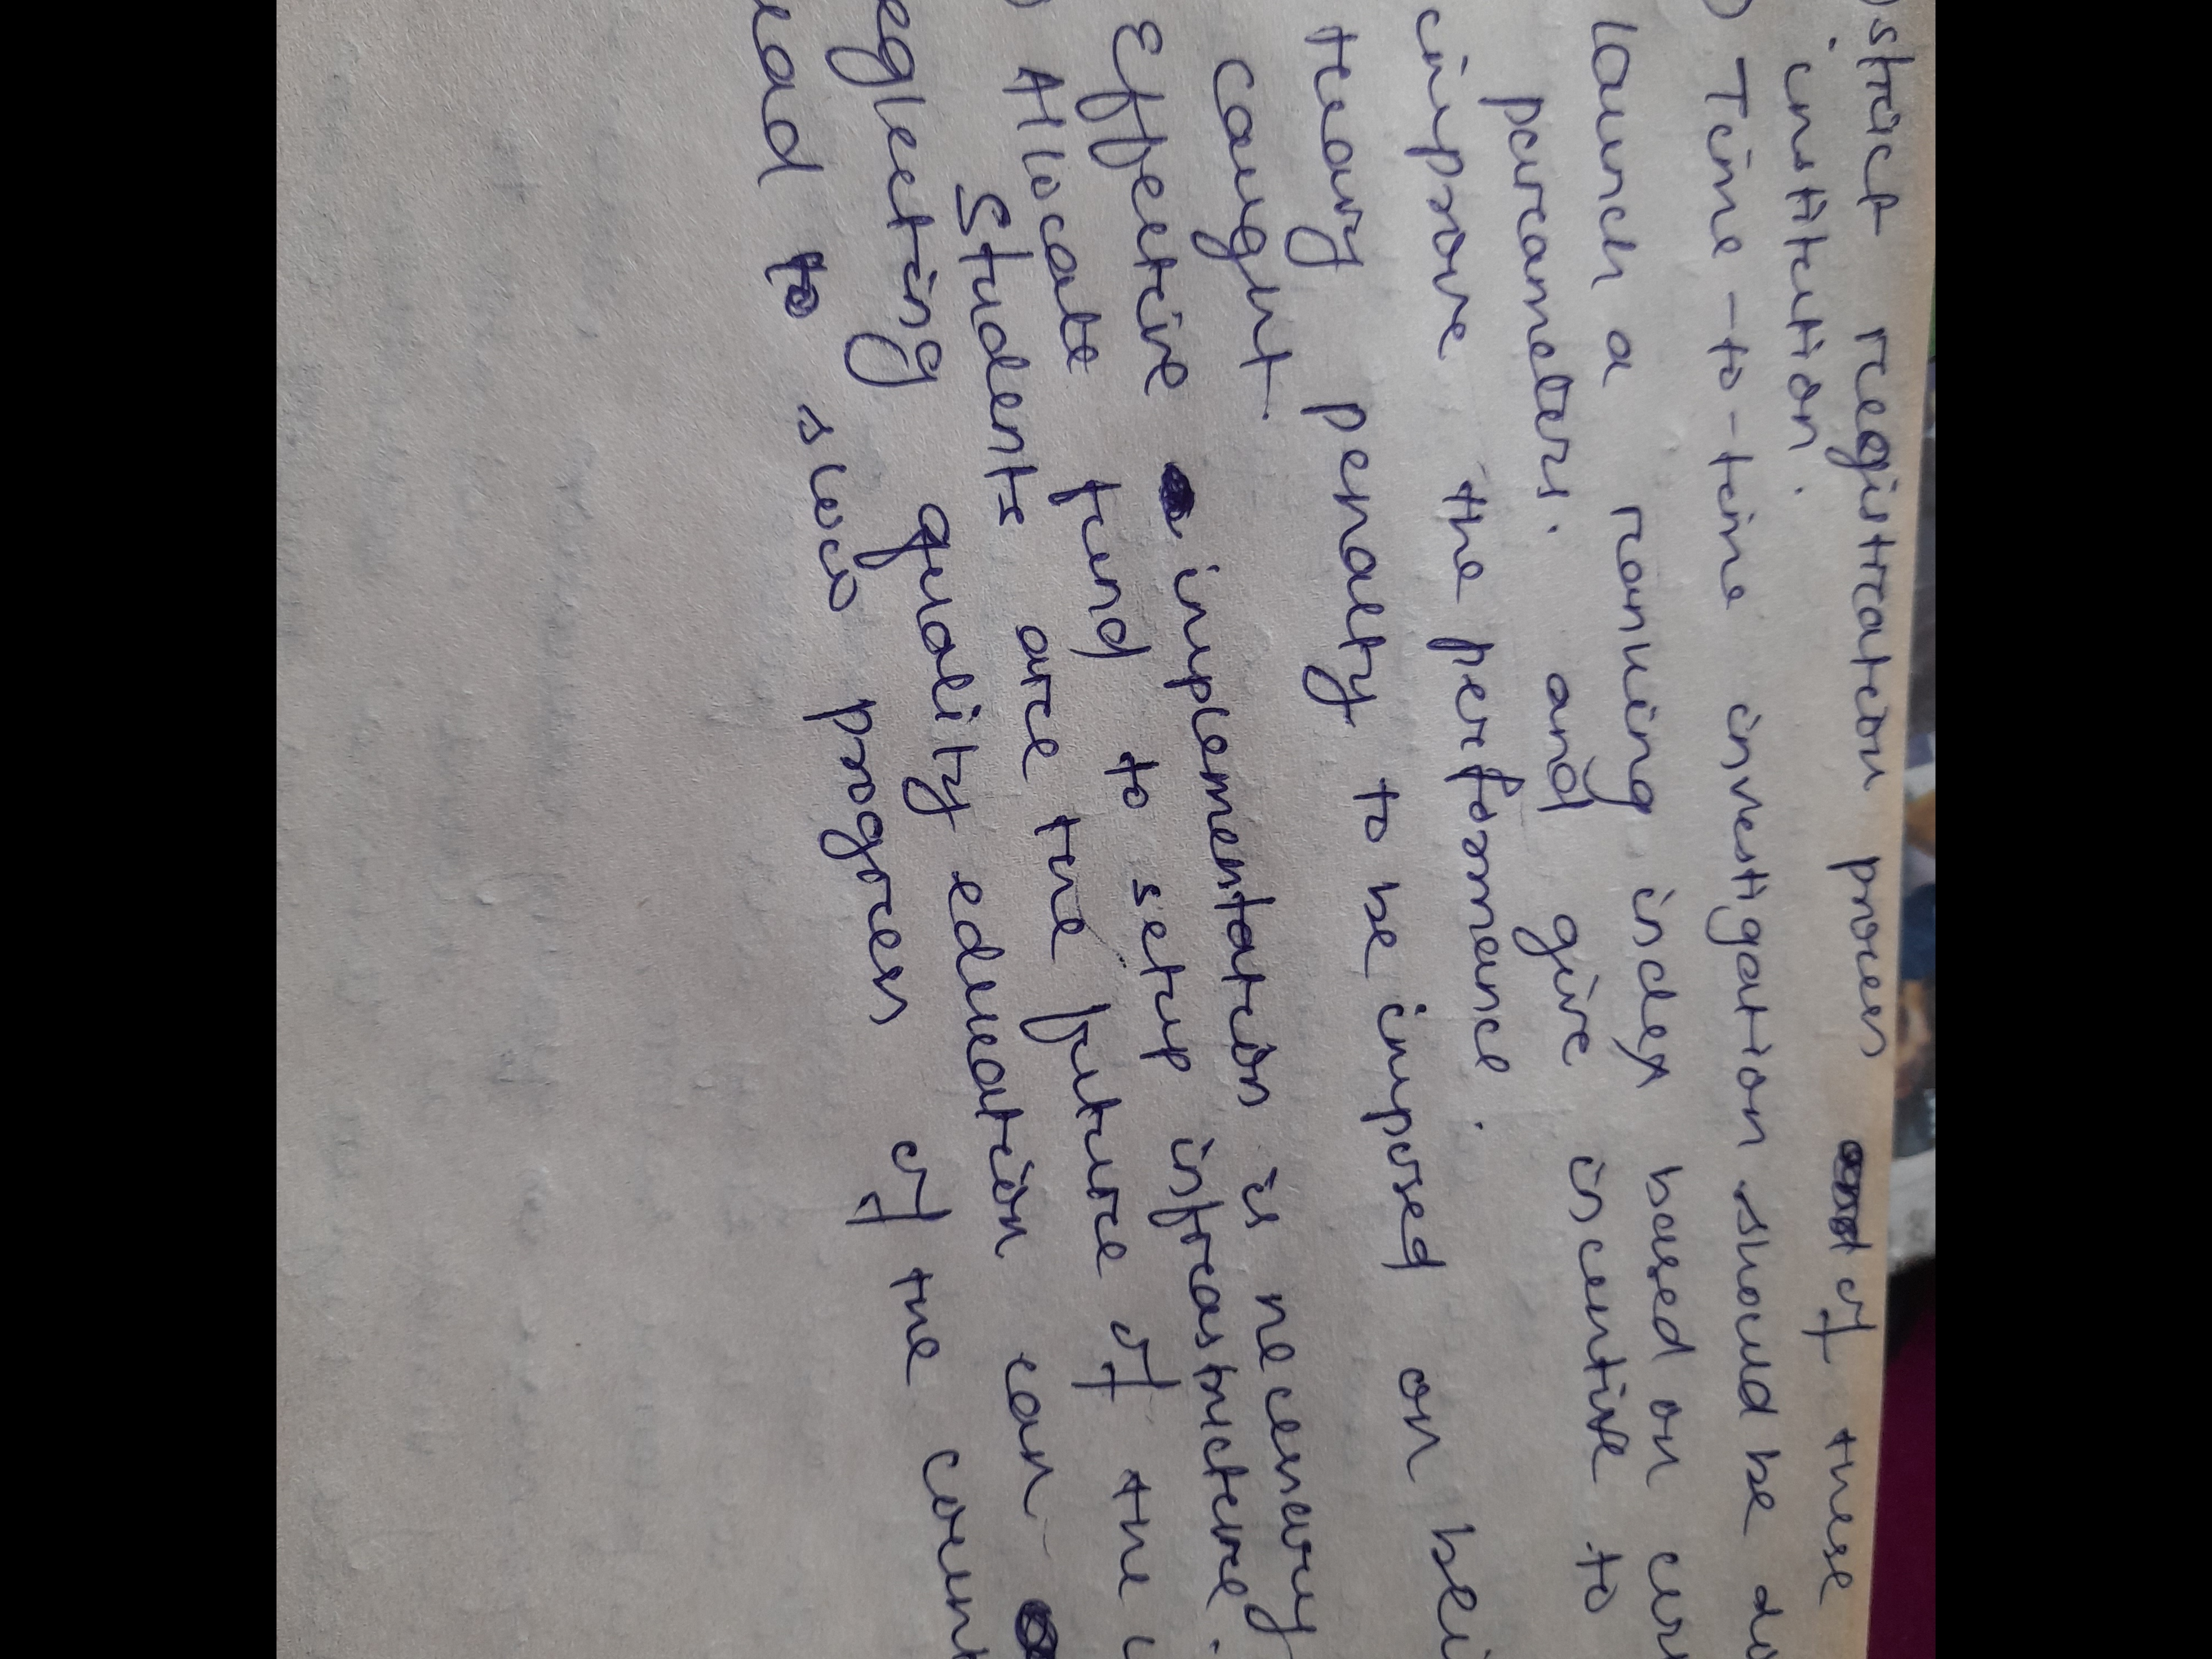 ) strict registration process of these
institution.
) Time-to-time investigation should be do
launch a ranking index based on cer
parameters. and give incentive to
improve the performance.
Heavy penalty to be imposed on bei
caught.
Effective implementation is necessary
) Allocate fund to setup infrastructure.
Students are the future of the c
eglecting quality education can
ead to slow progress of the count